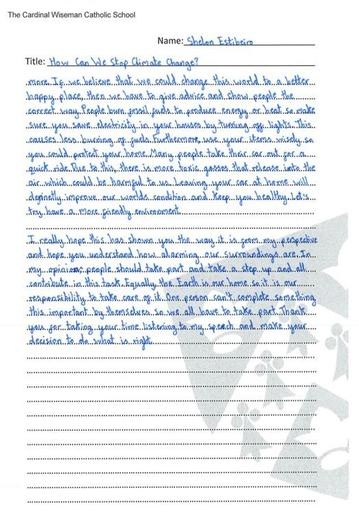 The Cardinal Wiseman Catholic School
Name: Shelon Estibeiro
Title: How Can We Stop Climate Change?
more. If we believe that we could change this world to a better
happy place, then we have to give advice and show people the
correct way. People burn fossil fuels to produce energy or heat so make
sure you save electricity in your houses by turning off lights. This
causes less burning of fuels. Furthermore, use your items wisely so
you could protect your home. Many people take their car out for a
quick ride. Due to this, there is more toxic gasses that release into the
air which could be harmful to us. Leaving your car at home will
definetly improve our worlds condition and keep you healthy. Let's
try have a more friendly environment.
I really hope this has shown you the way it is from my perspective
and hope you understand how alarming our surroundings are. In
my opinion, people should take part and take a step up and all
contribute in this task. Equally the Earth is our home so it is our
responsibility to take care of it. One person can't complete something
this important by themselves so we all have to take part. Thank
you for taking your time listening to my speech and make your
decision to do what is right.